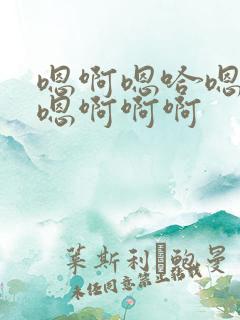 嗯啊嗯哈嗯
嗯啊啊啊
莱斯利�鲍曼
未经同意禁止转载